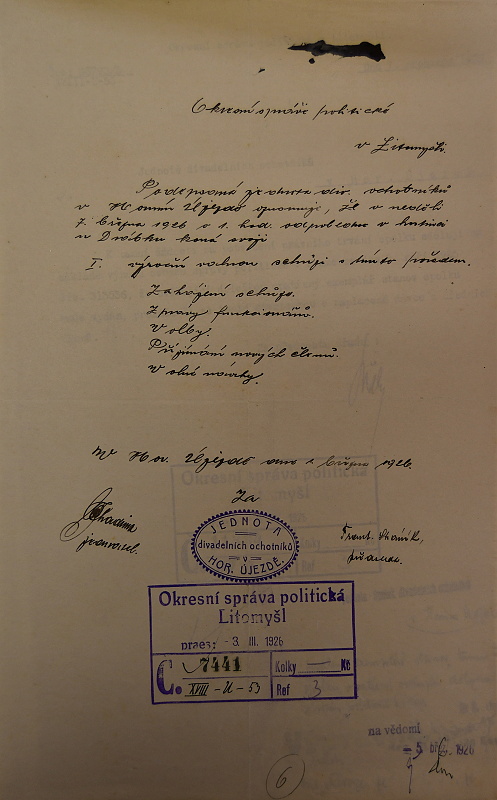 Okresní správě politické
v Litomyšli.
Podepsaná jednota div. ochotníků
v Horním Újezdě oznamuje, že v neděli
7. března 1926 o 1. hod. odpoledne v hostinci
u Drábků koná svoji
I. výroční valnou schůzi s tímto pořadem.
Zahájení schůze.
Zprávy funkcionářů.
Volby.
Přijímání nových členů.
Volné návrhy.
V Hor. Újezdě dne března 1926.
Za
jednatel.
Frant.
JEDNOTA
divadelních ochotníků
v
HOŘ. ÚJEZDĚ.
Okresní správa politická
Litomyšl
praes; - 3. III. 1926
Č. 7441
XVIII - U - 53
Kolky — Kč
Ref 3
na vědomí
- 5. 1926
6